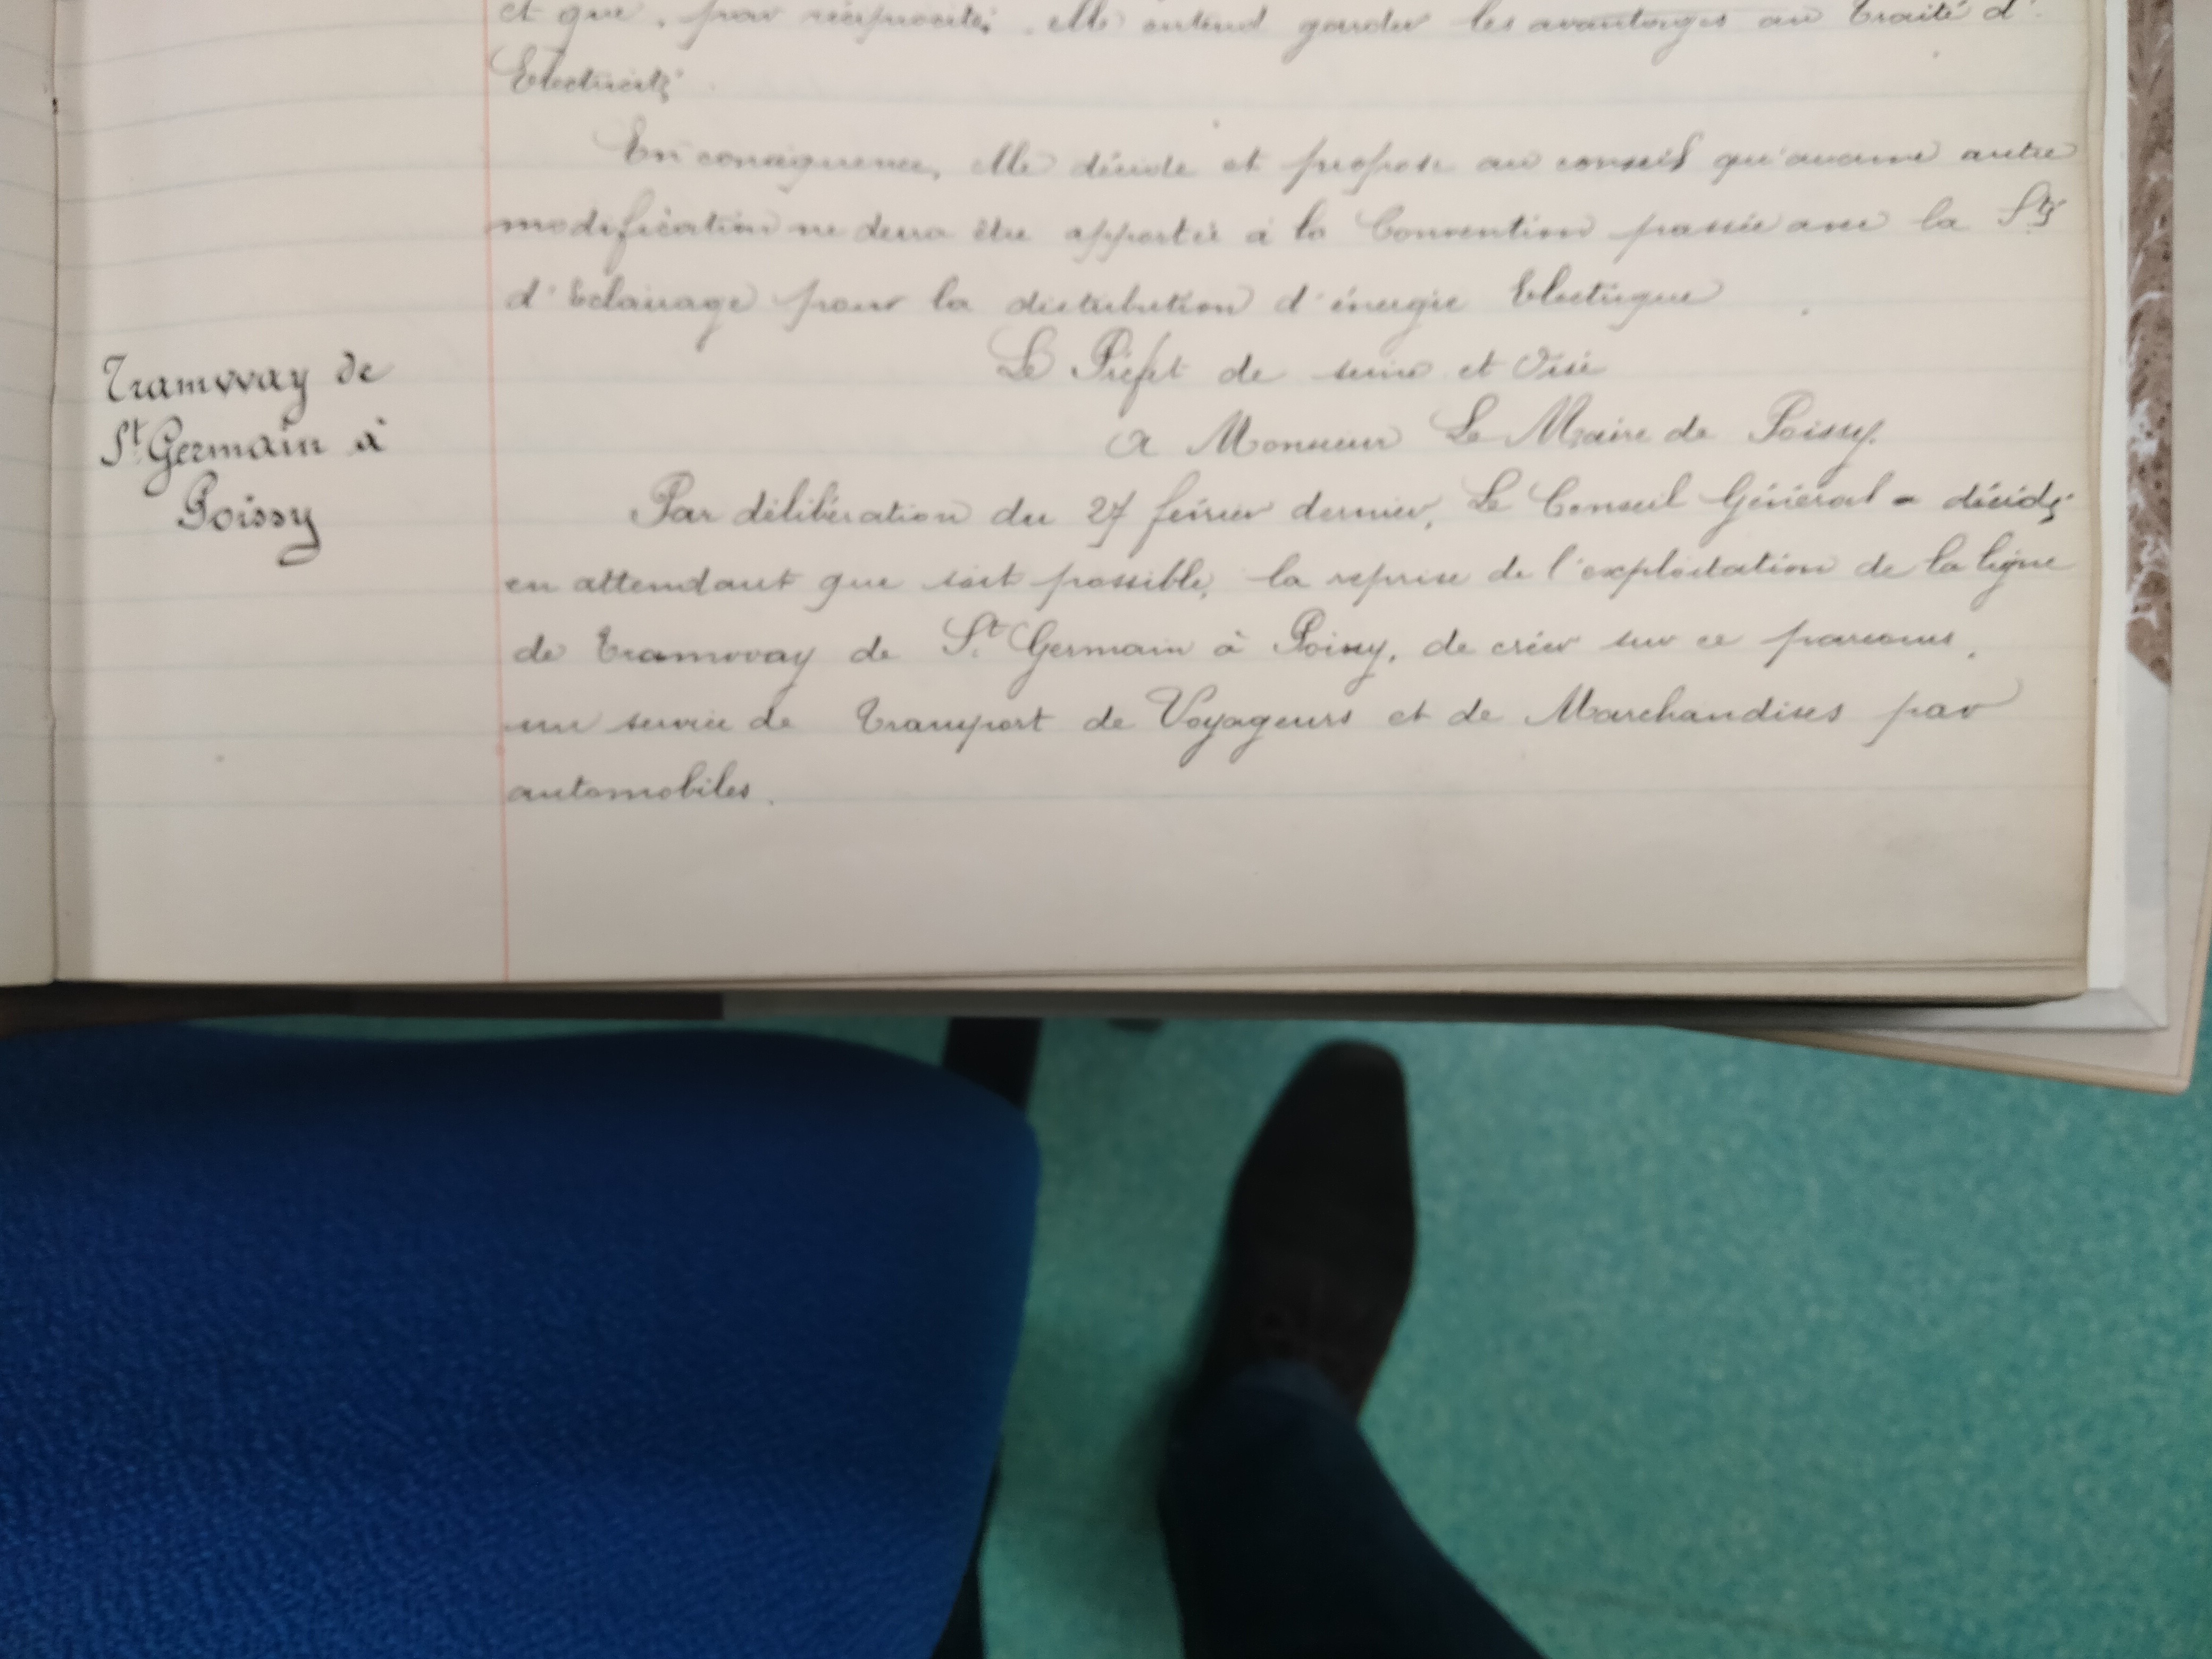 et que, par réciprocité, elle entend garder les avantages au Traité d'
Electricité.
En conséquence, elle décide et propose au conseil qu'aucune autre
modification ne devra être apportée à la Convention passée avec la Sté
d'Eclairage pour la distribution d'énergie Electrique.
Le Préfet de seine et Oise
A Monsieur Le Maire de Poissy.
Tramway de
St Germain à
Poissy
Par délibération du 27 février dernier, Le Conseil Général a décidé
en attendant que soit possible, la reprise de l'exploitation de la ligne
de Tramway de St Germain à Poissy, de créer sur ce parcours,
un service de Transport de Voyageurs et de Marchandises par
automobiles.